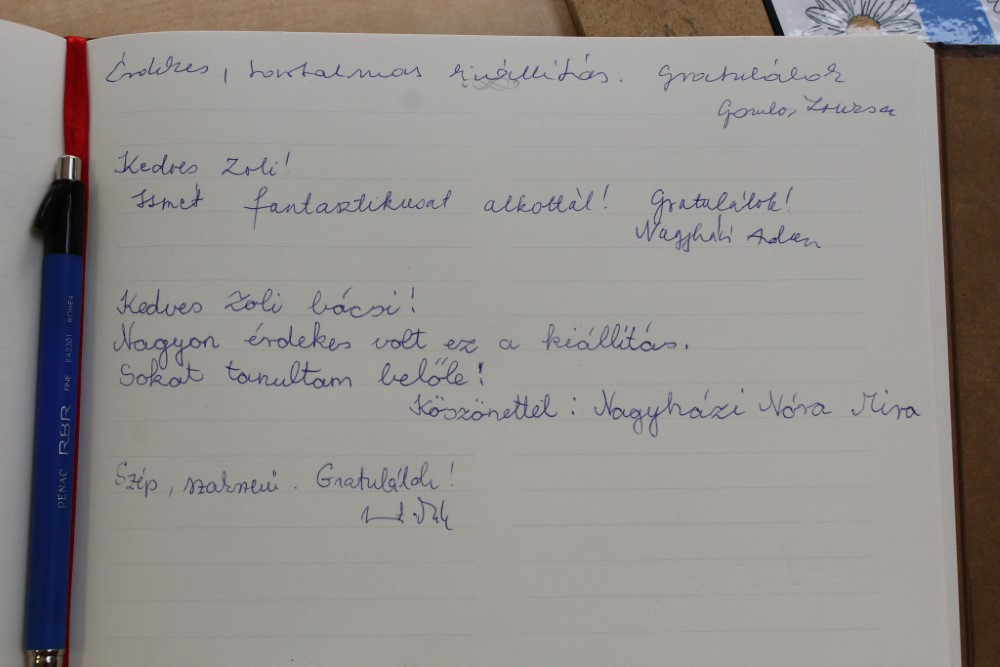 Érdekes, tartalmas kiállítás. Gratulálok
Zsuzsa
Kedves Zoli!
Ismét fantasztikusat alkottál! Gratulálok!
Nagyházi
Kedves Zoli bácsi!
Nagyon érdekes volt ez a kiállítás.
Sokat tanultam belőle!
Köszönettel: Nagyházi Nóra Mira
Szép, szakszerű. Gratulálok!
PENAC RBR FINE BA2301 KOREA